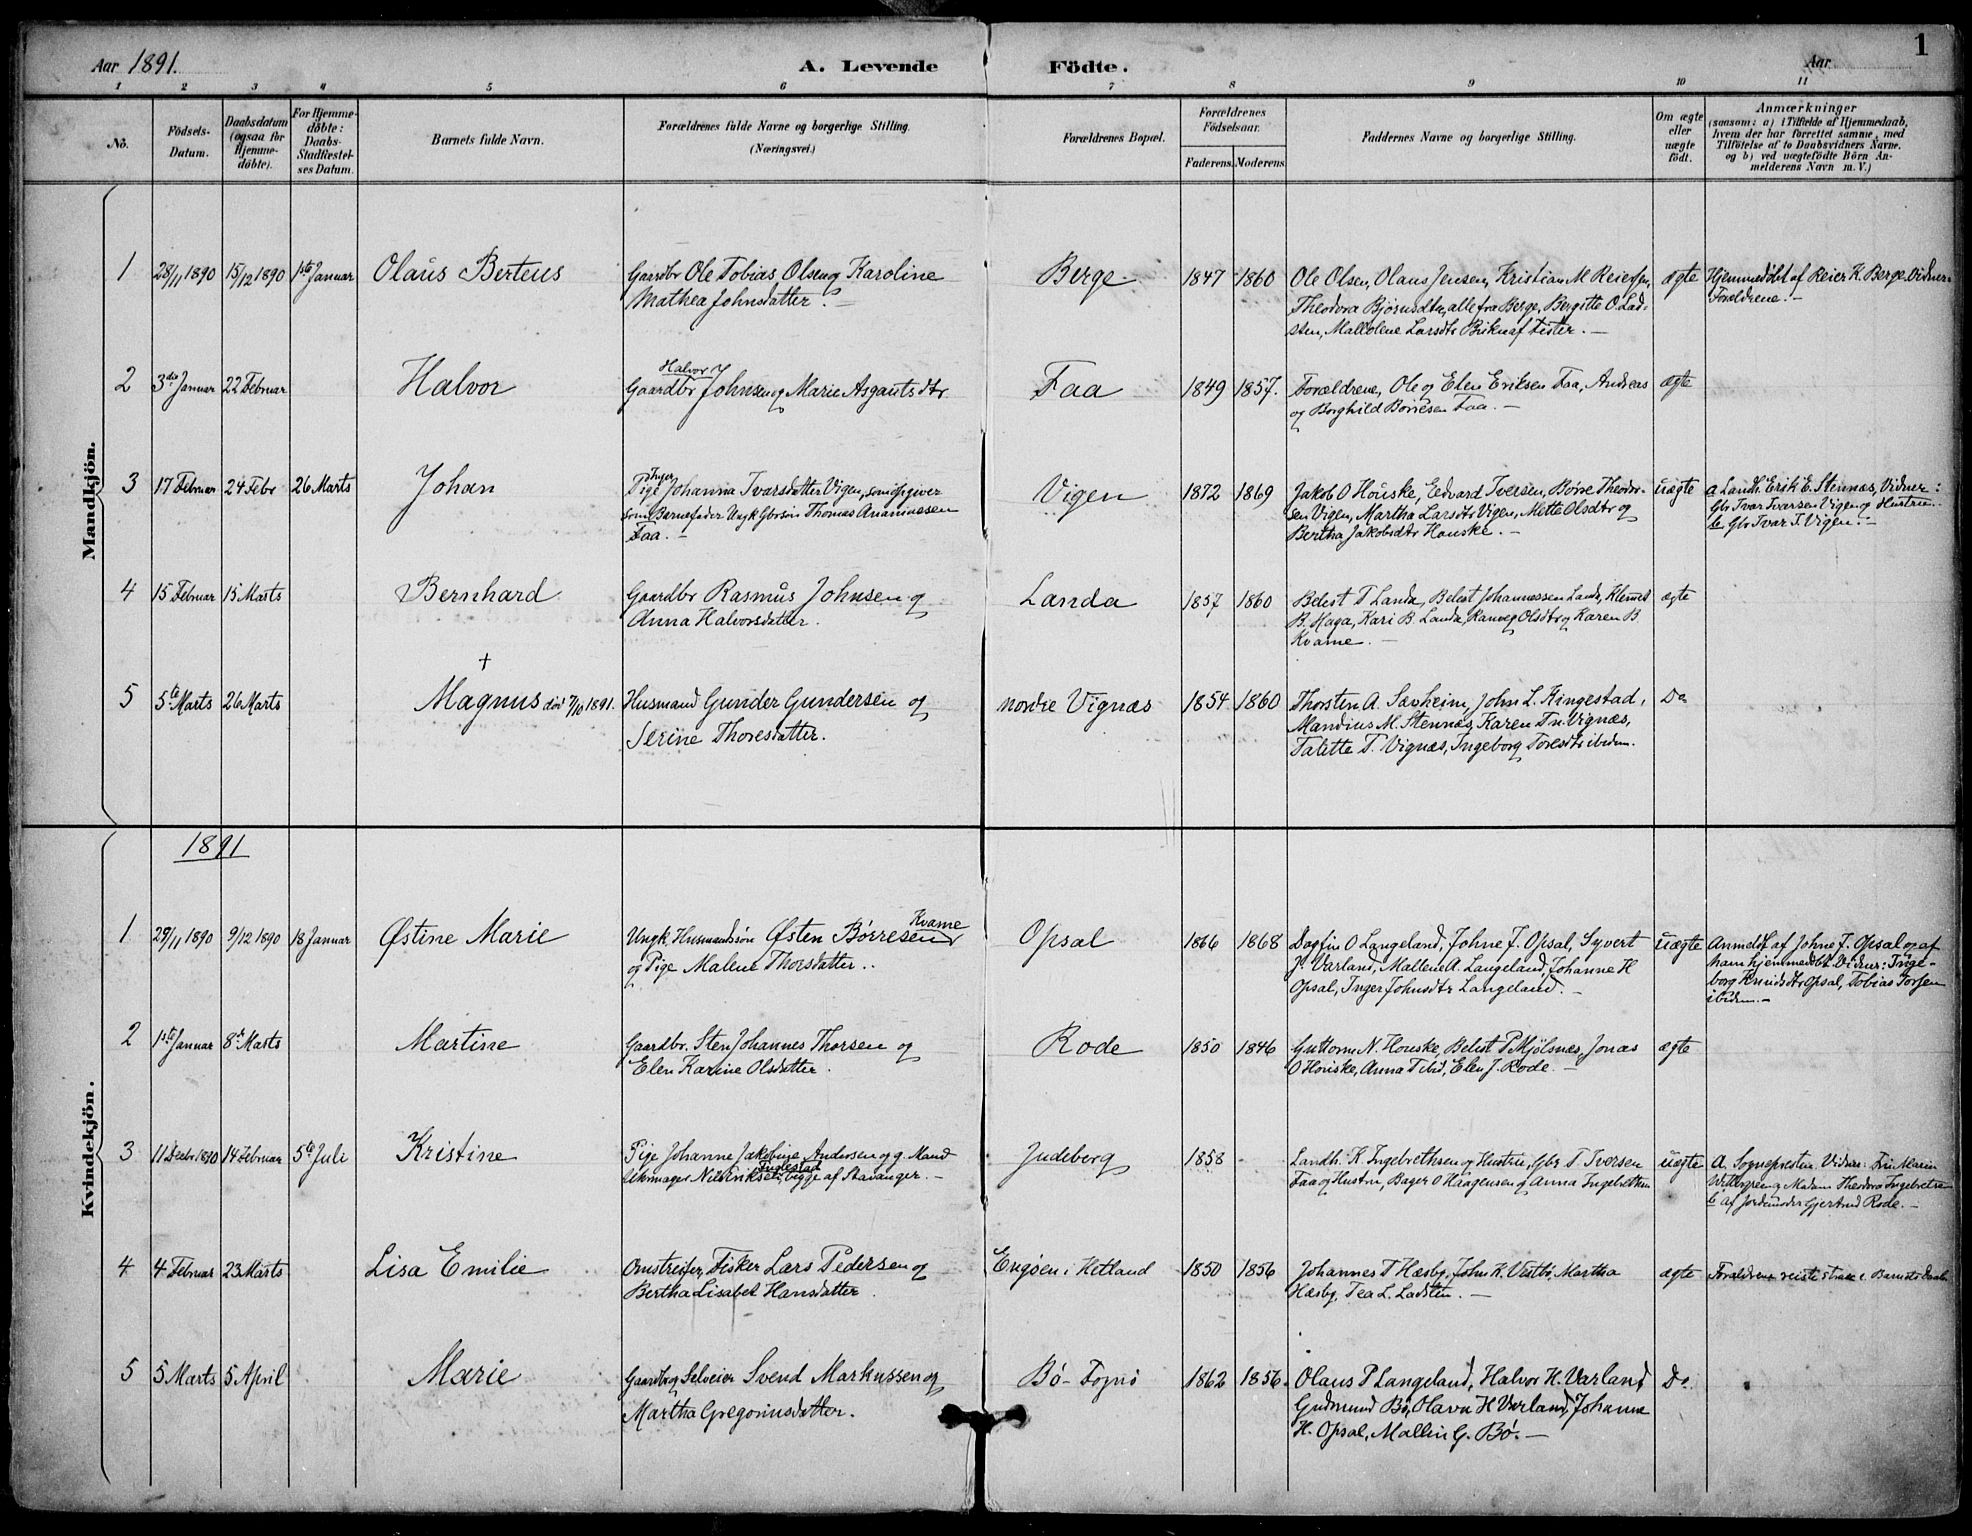 1
Aar 1891. A. Levende Födte. Aar
1 2 3 4 5 6 7 8 9 10 11
No. Födsels-Datum. Daabsdatum (ogsaa for Hjemmedöbte). For Hjemmedöbte: Daabs-Stadfestelses Datum. Barnets fulde Navn. Forældrenes fulde Navne og borgerlige Stilling. (Næringsvei.) Forældrenes Bopæl. Forældrenes Födselsaar. Faderens. Moderens. Faddernes Navne og borgerlige Stilling. Om ægte eller uægte födt. Anmærkninger (saasom: a) i Tilfælde af Hjemmedaab, hvem der har forrettet samme, med Tilföielse af to Daabsvidners Navne. og b) ved uægtefödte Börn Anmelderens Navn m. V.)
Mandkjön.
1 28/11 1890 15/12 1890 1ste Januar Olaus Berteus Gaardbr Ole Tobias Olsen og Karoline
Mathea Johnsdatter.
Berge 1847 1860 Ole Olsen, Olaus Jensen, Kristian M Reiersen,
Theodora Bjørnsdtr, alle fra Berge, Bergitte O. Lad-
sten, Mallolene Larsdtr Birkn af Fister.
ægte Hjemmedøbt af Reier K. Berge. Vidner:
Forældrene.
2 3die Januar 22 Februar Halvor Halvor
Gaardbr Johnsen og Marie Asgautsdtr
Faa 1849 1857. Forældrene, Ole og Elen Eriksen Faa, Andreas
og Borghild Børresen Faa.
ægte
3 17 Februar 24 Febr 26 Marts Johan Inger
Pige Johanna Ivarsdatter Vigen, som opgiver
som Barnefader Ungk Gbrsøn Thomas Ananiasen
Faa.
Vigen 1872 1869 Jakob O Houske, Edvard Iversen, Børre Theodor-
sen Vigen, Martha Larsdtr Vigen, Mette Olsdtr og
Bertha Jakobsdtr Houske.
uægte a Landh. Erik E. Stennæs, Vidner:
Gbr Ivar Ivarsen Vigen og Hustru.
b Gbr Ivar I. Vigen.
4 15 Februar 15 Marts Bernhard Gaardbr Rasmus Johnsen og
Anna Halvorsdatter.
Landa 1857 1860 Belest T Landa, Belest Johannessen Landa, Klemet
B. Haga, Kari B. Landa, Ranveg Olsdtr og Karen B.
Kvame.
ægte
5 5te Marts 26 Marts + Magnus død 7/10 1891. Husmand Gunder Gundersen og
Serine Thoresdatter.
nordre Vignæs 1854 1860 Thorsten A. Savheim, John L. Ringestad,
Mandius M. Stennæs, Karen T n. Vignæs,
Talette T. Vignæs, Ingeborg Toresdtr ibidem.
Do
1891
Kvindekjön.
1 29/11 1890 9/12 1890 18 Januar Østine Marie Kvame
Ungk. Husmandssøn Østen Børresen
og Pige Malene Thorsdatter.
Opsal 1866 1868 Dagfin O Langeland, Johne J. Opsal, Syvert
J. Varland, Maltene A. Langeland, Johanne H
Opsal, Inger Johnsdtr Langeland.
uægte Anmeldt af Johne J. Opsal og af
ham hjemmedøbt. Vidner: Inge-
borg Knudsdtr Opsal, Tobias Torsen
ibidem.
2 1ste Januar 8de Marts Martine Gaardbr. Sten Johannes Thorsen og
Elen Karine Olsdatter.
Rode 1850 1846 Guttorm N. Houske, Belest P Mjølsnæs, Jonas
O Houske, Anna T ibid, Elen J. Rode.
ægte
3 11 Decbr 1890 14 Februar 5te Juli Kristine Pige Johanne Jakobine Andersen og g. Mand
Uhrmager Nils Eriksen Inglestad, begge af Stavanger.
Judeberg 1858 Landh. K Ingebrethsen og Hustru, Gbr T Iversen
Faa og Hustru, Bager O Haagensen og Anna Ingebrethsen
uægte A. Sognepresten. Vidner: Fru Maren
Wittsgreen og Madam Theodora Ingebretsen
b af Jordemoder Gjertrud Rode.
4 4 Februar 23 Marts Lisa Emilie Omstreifer, Fisker Lars Pedersen og
Bertha Lisabet Hansdatter.
Engøen i Hetland 1850 1856 Johannes T Hæsby, John K. Vestbø, Martha
Hæsby, Tea L. Ladsten.
ægte Forældrene reiste strax e. Barnets Daab.
5 5 Marts 5 April Marie Gaardbr og Selveier Svend Markussen og
Martha Gregoriusdatter.
Bø - Fognø 1862 1856. Olaus P Langeland, Halvor H. Varland
Gudmund Bø, Olava H Varland, Johanna
H. Opsal, Mallin G. Bø.
Do